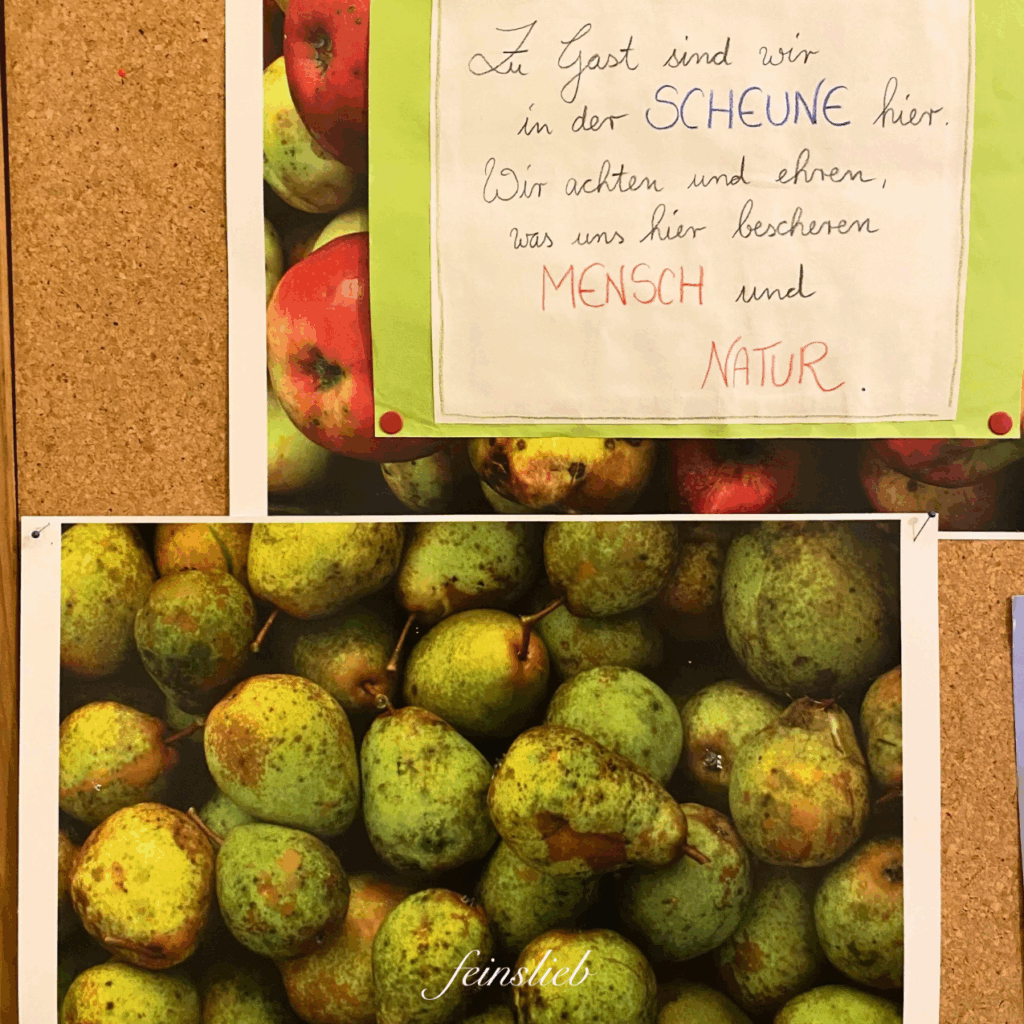 Zu Gast sind wir
in der SCHEUNE hier.
Wir achten und ehren,
was uns hier bescheren
MENSCH und
NATUR.
feinslieb